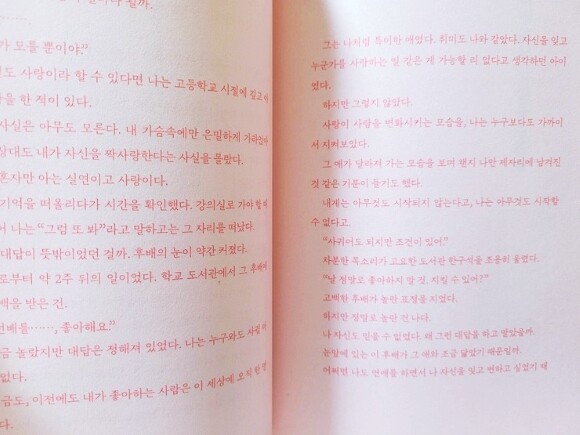 ……
가 모를 뿐이야."
도 사랑이라 할 수 있다면 나는 고등학교 시절에 짚고
을 한 적이 있다.
사실은 아무도 모른다. 내 가슴속에만 은밀하게 가라앉아
상대도 내가 자신을 짝사랑한다는 사실을 몰랐다.
혼자만 아는 실연이고 사랑이다.
기억을 떠올리다가 시간을 확인했다. 강의실로 가야 할 때
어 나는 "그럼 또 봐"라고 말하고는 그 자리를 떠났다.
대답이 뜻밖이었던 걸까. 후배의 눈이 약간 커졌다.
로부터 약 2주 뒤의 일이었다. 학교 도서관에서 그 후배에
백을 받은 건.
선배를……, 좋아해요."
금 놀랐지만 대답은 정해져 있었다. 나는 누구와도 사귈
없다.
금도, 이전에도 내가 좋아하는 사람은 이 세상에 오직 한 명
다.
그는 나처럼 특이한 애였다. 취미도 나와 같았다. 자신을 잊고
누군가를 사랑하는 일 같은 게 가능할 리 없다고 생각하던 아이
였다.
하지만 그렇지 않았다.
사랑이 사람을 변화시키는 모습을, 나는 누구보다도 가까이
서 지켜보았다.
그 애가 달라져 가는 모습을 보며 왠지 나만 제자리에 남겨진
것 같은 기분이 들기도 했다.
내게는 아무것도 시작되지 않는다고, 나는 아무것도 시작할
수 없다고.
"사귀어도 되지만 조건이 있어."
차분한 목소리가 고요한 도서관 한구석을 조용히 울렸다.
"날 정말로 좋아하지 말 것. 지킬 수 있어?"
고백한 후배가 놀란 표정을 지었다.
하지만 정말로 놀란 건 나다.
나 자신도 믿을 수 없었다. 왜 그런 대답을 하고 말았을까.
눈앞에 있는 이 후배가 그 애와 조금 닮았기 때문일까.
어쩌면 나도 연애를 하면서 나 자신을 잊고 변하고 싶었기 때